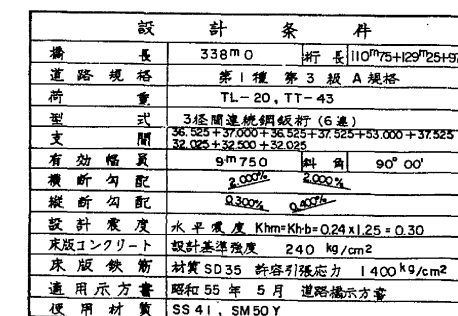 設計条件
橋長 338m0 桁長 110m75+129m25+97
道路規格 第1種 第3級 A規格
荷重 TL-20, TT-43
型式 3径間連続鋼鈑桁(6連)
支間 36.525+37.000+36.525+37.525+53.000+37.525
32.025+32.500+32.025
有効幅員 9m750 斜角 90° 00'
横断勾配 2.000% 2.000%
縦断勾配 0.300% 0.400%
設計震度 水平震度 Khm=Kh·b=0.24x1.25=0.30
床版コンクリート 設計基準強度 240 kg/cm2
床版鉄筋 材質SD35 許容引張応力 1400kg/cm2
適用示方書 昭和55年 5月 道路橋示方書
使用材質 SS41, SM50Y